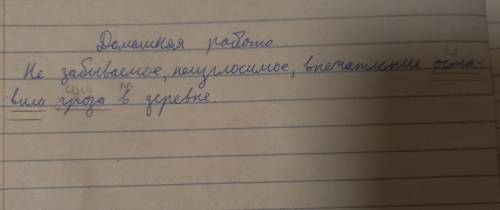 Домашняя работа
Не забываемое, неизгласимое, впечатление оста-
вило гроза в деревне.